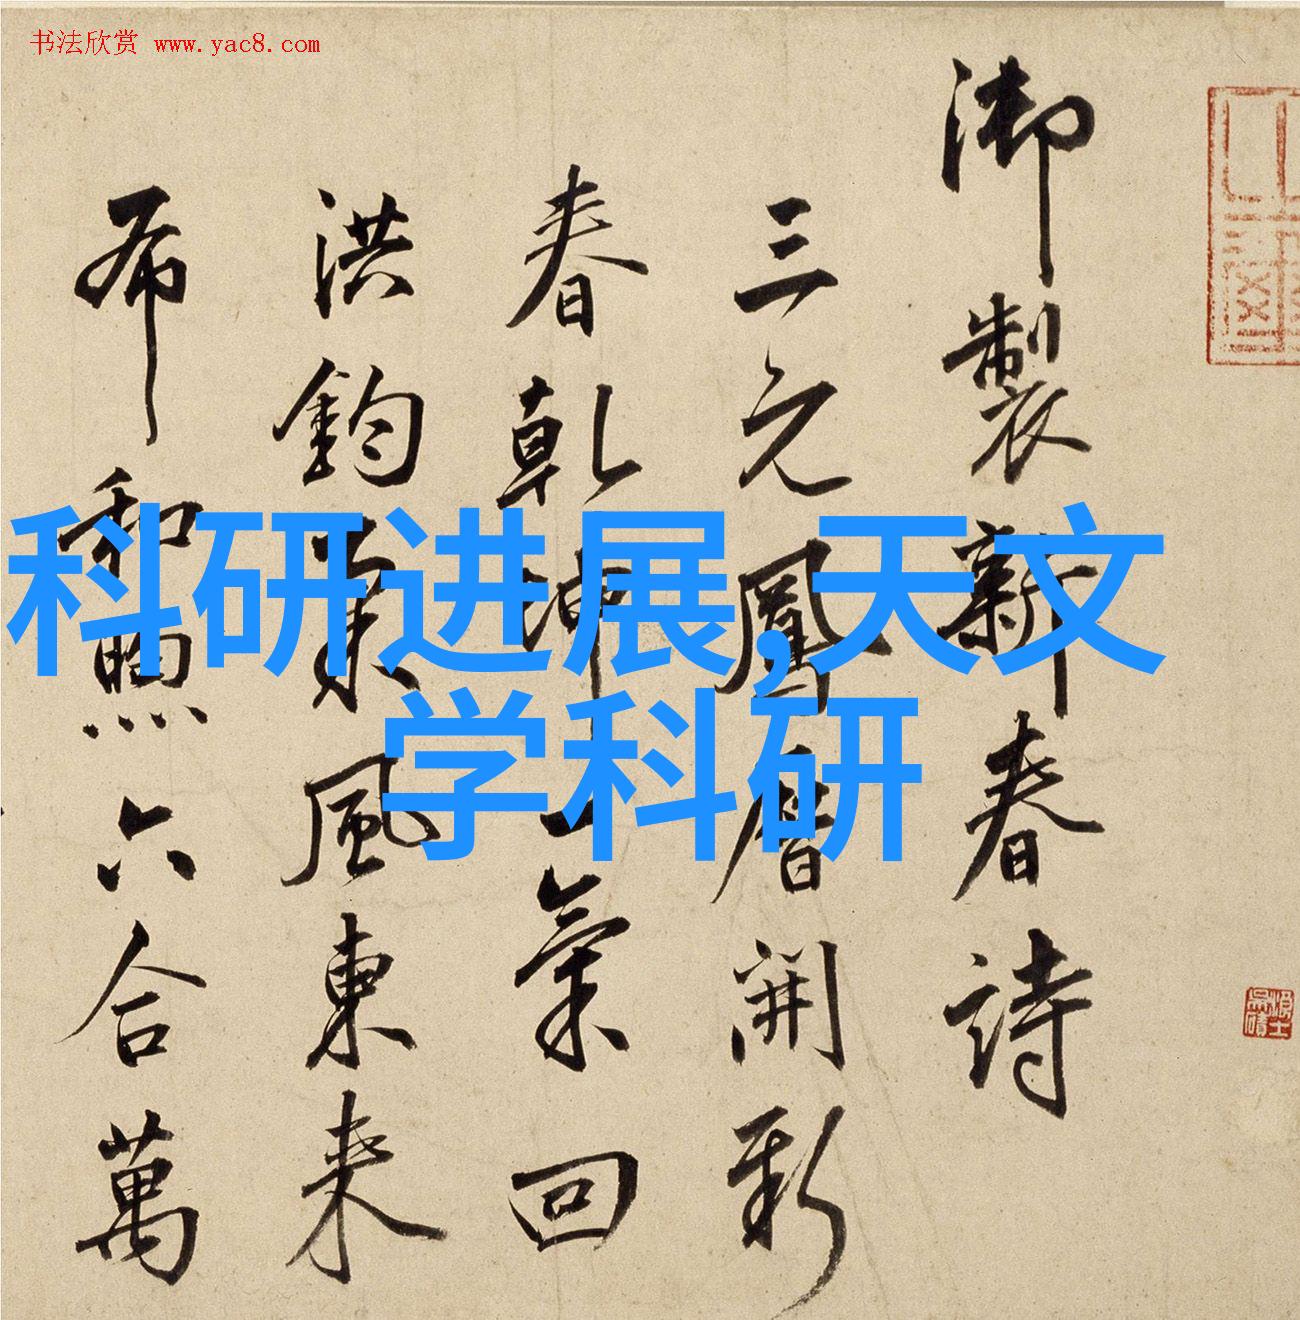 书法欣赏 www.yac8.com
御製新春詩
三元鳳曆開新
春乾坤一氣回
洪鈞風東来
布和煦六合萬
科研进展,天文
学科研